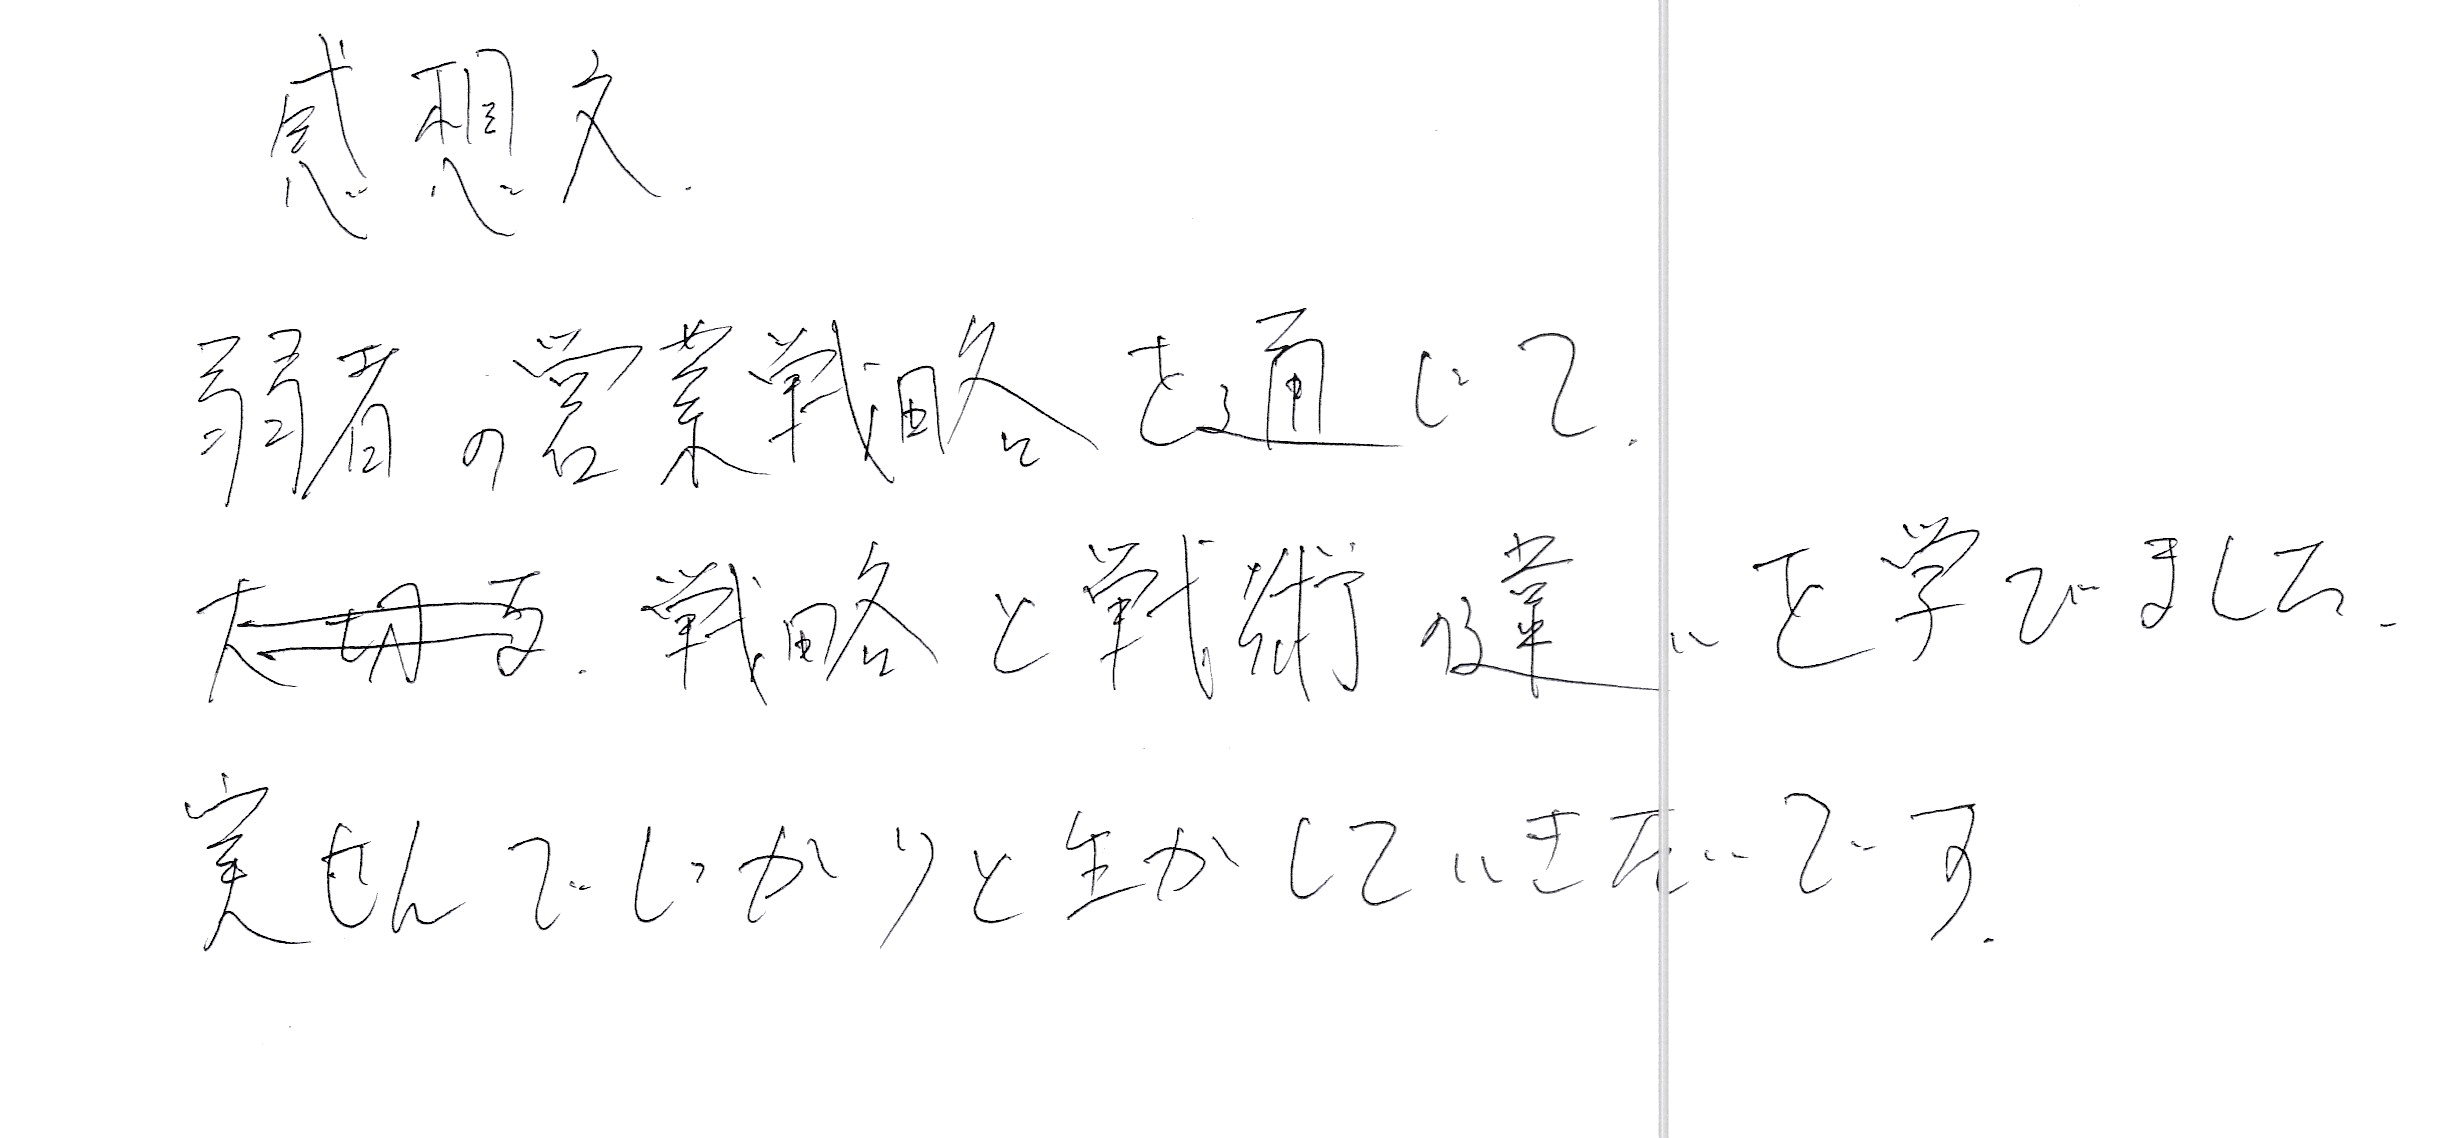 感想文.
弱者の営業戦略を通じて.
大切な.戦略と戦術の違いを学でました.
実せんでしっかりと生かしていきたいです.